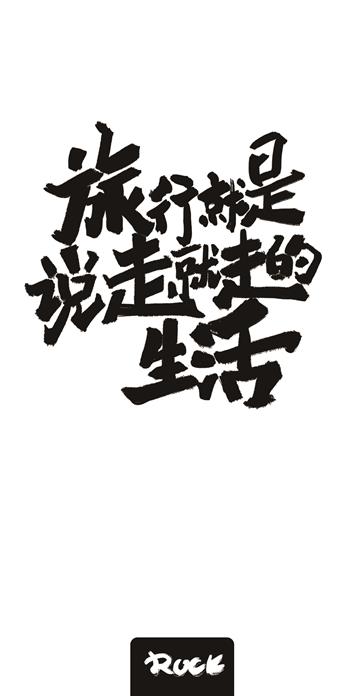 旅行就是
说走就走的
生活
ROCK